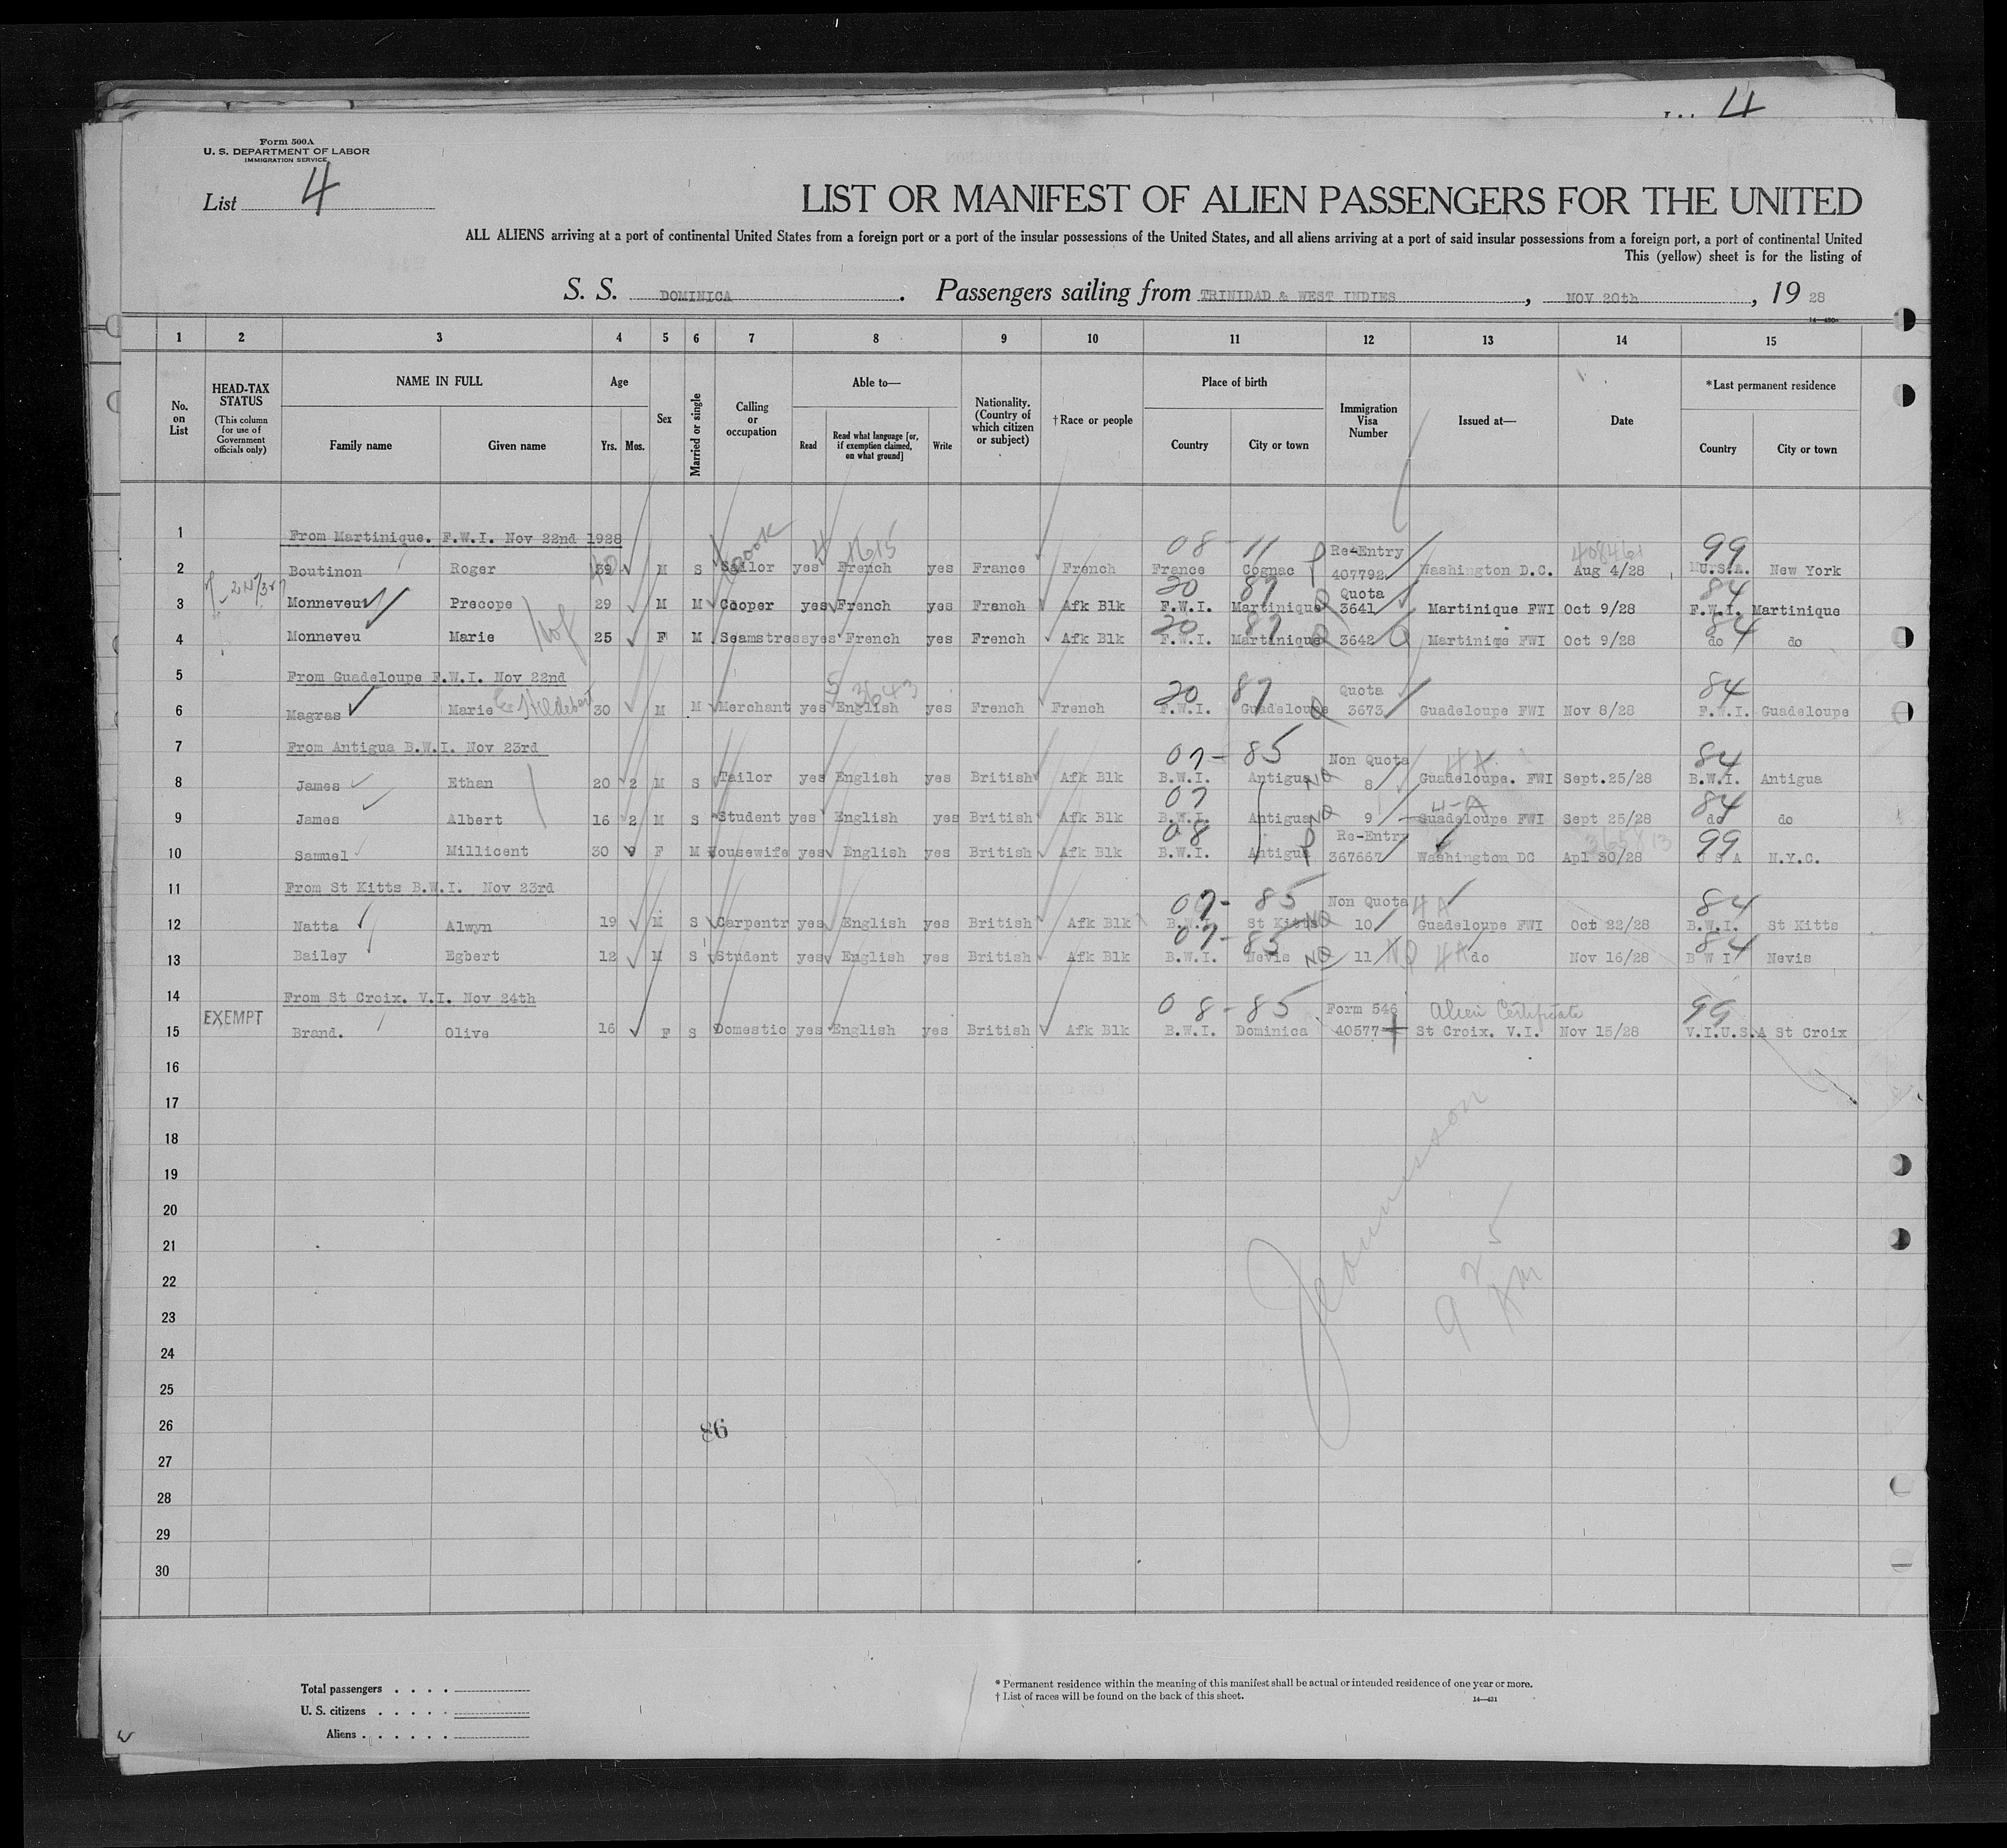 4
Form 500A
U. S. DEPARTMENT OF LABOR
IMMIGRATION SERVICE
List 4
LIST OR MANIFEST OF ALIEN PASSENGERS FOR THE UNITED
ALL ALIENS arriving at a port of continental United States from a foreign port or a port of the insular possessions of the United States, and all aliens arriving at a port of said insular possessions from a foreign port, a port of continental United
This (yellow) sheet is for the listing of
S. S. DOMINICA. Passengers sailing from TRINIDAD & WEST INDIES, NOV 20th, 19 28
14—430a
1 2 3 4 5 6 7 8 9 10 11 12 13 14 15
No. on List
HEAD-TAX STATUS (This column for use of Government officials only)
NAME IN FULL Family name Given name
Age Yrs. Mos.
Sex
Married or single
Calling or occupation
Able to— Read Read what language [or, if exemption claimed, on what ground] Write
Nationality. (Country of which citizen or subject)
†Race or people
Place of birth Country City or town
Immigration Visa Number
Issued at—
Date
*Last permanent residence Country City or town
1 From Martinique. F.W.I. Nov 22nd 1928
Cook 4 1615 08-11 Re-Entry 408461 99
2 Boutinon Roger 39 M S Sailor yes French yes France French France Cognac 407792 Washington D.C. Aug 4/28 U.S.A. New York
20 87 Quota 84
3 Monneveu Precope 29 M M Cooper yes French yes French Afk Blk F.W.I. Martinique 3641 Martinique FWI Oct 9/28 F.W.I. Martinique
20 87 84
4 Monneveu Marie wf 25 F M Seamstress yes French yes French Afk Blk F.W.I. Martinique 3642 Q Martiniqe FWI Oct 9/28 do do
5 From Guadeloupe F.W.I. Nov 22nd
5 3643 20 87 Quota 84
6 Magras Marie 30 M M Merchant yes English yes French French F.W.I. Guadeloupe 3673 Guadeloupe FWI Nov 8/28 F.W.I. Guadeloupe
7 From Antigua B.W.I. Nov 23rd
07-85 Non Quota 4A 84
8 James Ethan 20 2 M S Tailor yes English yes British Afk Blk B.W.I. Antigua NQ 8 Guadeloupe. FWI Sept.25/28 B.W.I. Antigua
07 4-A 84
9 James Albert 16 2 M S Student yes English yes British Afk Blk B.W.I. Antigua NQ 9 Guadeloupe FWI Sept 25/28 do do
08 Re-Entry 365813 99
10 Samuel Millicent 30 9 F M Housewife yes English yes British Afk Blk B.W.I. Antigua 367667 Washington DC Apl 30/28 U S A N.Y.C.
11 From St Kitts B.W.I. Nov 23rd
07-85 Non Quota 4A 84
12 Natta Alwyn 19 M S Carpentr yes English yes British Afk Blk B.W.I. St Kitts NQ 10 Guadeloupe FWI Oct 22/28 B.W.I. St Kitts
07-85 84
13 Bailey Egbert 12 M S Student yes English yes British Afk Blk B.W.I. Nevis NQ 11 NQ 4A do Nov 16/28 B W I Nevis
14 From St Croix. V.I. Nov 24th
EXEMPT 08-85 Form 546 Alien Certificate 99
15 Brand. Olive 16 F S Domestic yes English yes British Afk Blk B.W.I. Dominica 40577 St Croix. V.I. Nov 15/28 V.I.U.S.A St Croix
16
17
18
19
20
21
22
23
24
25
26
86
27
28
29
30
Total passengers
U. S. citizens
Aliens
* Permanent residence within the meaning of this manifest shall be actual or intended residence of one year or more.
† List of races will be found on the back of this sheet.
14—431